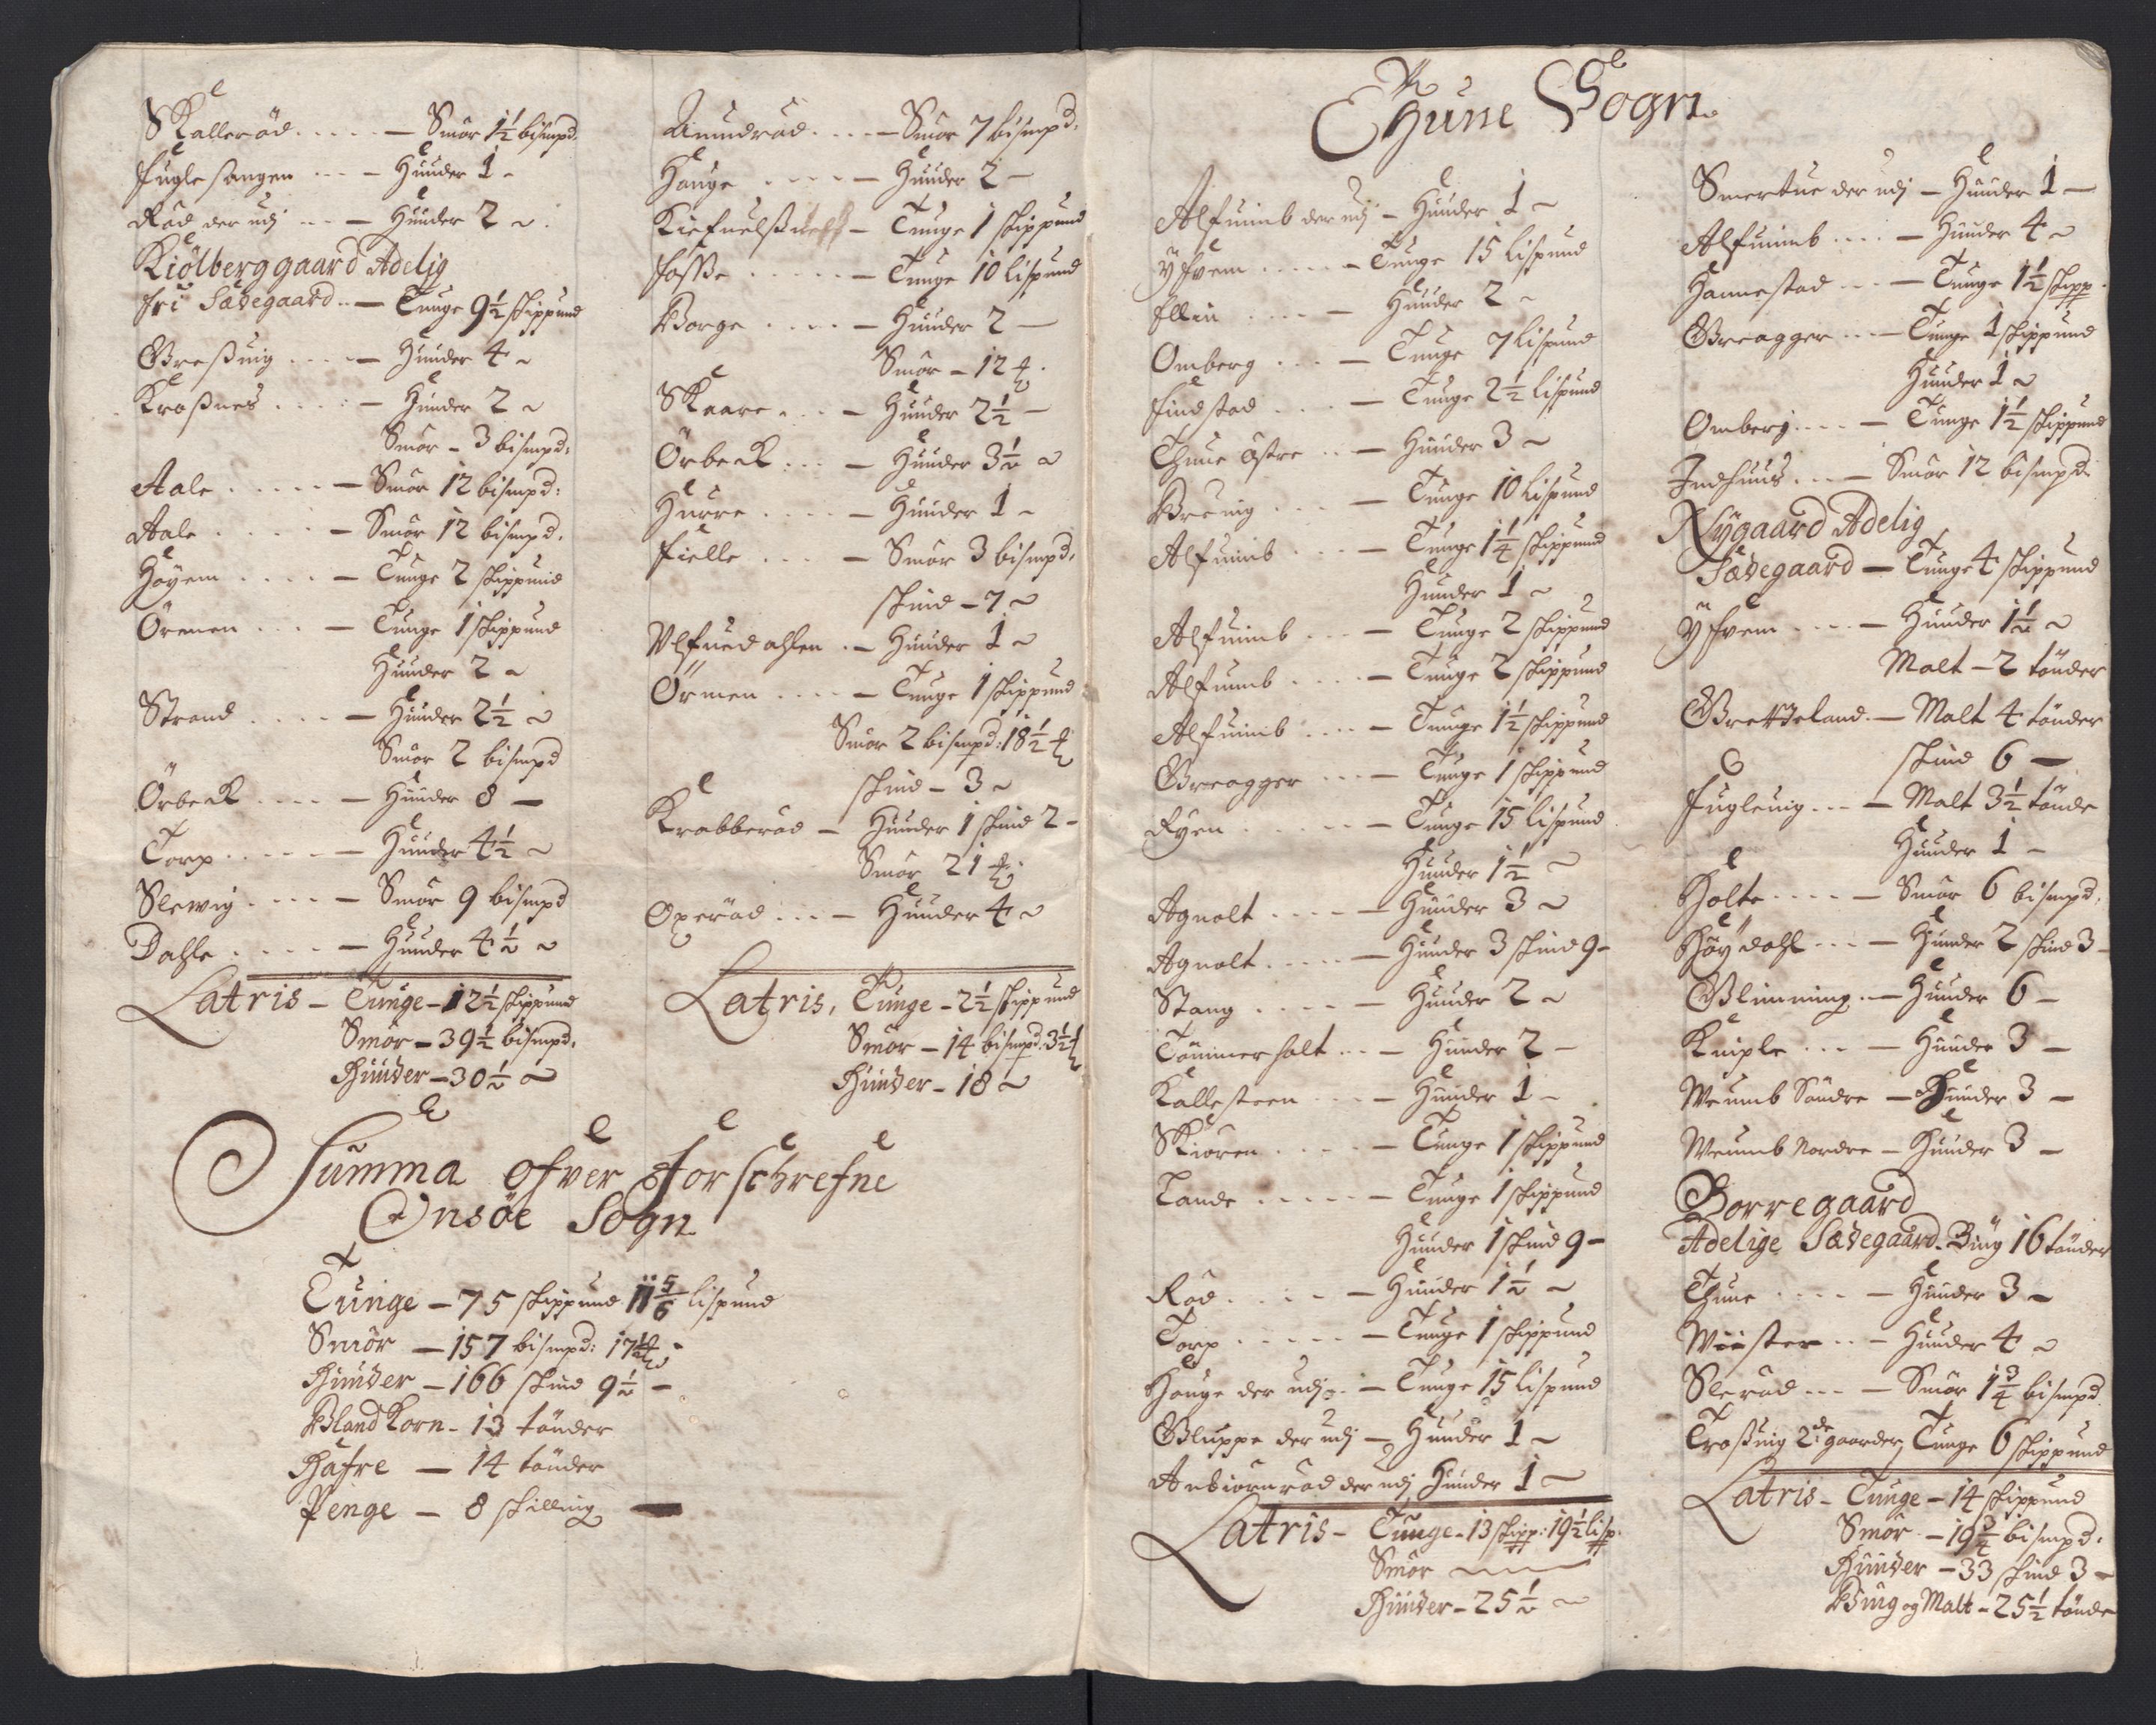 Skalleröd ..... — Smör 1½ bismpd.
Fuglesangen ... — Huuder 1 ~
Röd der udj ... — Huuder 2 ~
Kiölberggaard Adelig
fri Sædegaard .. — Tunge 9½ skippund
Gressuig .... — Huuder 4 ~
Krossnes .... — Huuder 2 ~
Smör — 3 bismpd:
Aale ..... — Smör 12 bismpd:
Aale .... — Smör 12 bismpd.
Höyem .... — Tunge 2 skippund
Örmen ... — Tunge 1 skippund
Huuder 2 ~
Strand .... — Huuder 2½ ~
Smör 2 bismpd
Örbeck .... — Huuder 8 —
Torp ..... — Huuder 4½ ~
Slewig .... — Smör 9 bismpd
Dahle .... — Huuder 4½ ~
Latris — Tunge — 12½ skippund
Smör — 39½ bismpd.
Huuder — 30½ ~
Amundröd ... — Smör 7 bismpd.
Houge .... — Huuder 2 —
— Tunge 1 skippund
Fosse ..... — Tunge 10 lispund
Borge .... — Huuder 2 —
Smör — 12 ℔.
Skaare ... — Huuder 2½ —
Örbeck ... — Huuder 3½ ~
Hurre .... — Huuder 1 ~
Fielle ... — Smör 3 bismpd.
skind — 7 ~
Ulfuedahlen . — Huuder 1 ~
Örmen .... — Tunge 1 skippund
Smör 2 bismpd: 18½ ℔
skind — 3 ~
Krabberöd — Huuder 1 skind 2 —
Smör 21 ℔.
Oxeröd ... — Huuder 4 ~
Latris, Tunge — 2½ skippund
Smör — 14 bismpd. 3½ ℔
Huuder — 18 ~
Summa ofver forschrefne
Onsöe Sogn
Tunge — 75 skippund 11 5/6 lispund
Smör — 157 bismpd: 17½ ℔ —
Huuder — 166 skind 9½ —
Bland Korn — 13 tönder
Hafre — 14 tönder
Penge — 8 skilling —
Thune Sogn
Alfuimb der udj — Huuder 1 ~
Yfven ..... — Tunge 15 lispund
Ellin .... — Huuder 2 ~
Omberg ... — Tunge 7 lispund
Findstad ... — Tunge 2½ lispund
Thune Östre .. — Huuder 3 ~
Breuig ... — Tunge 10 lispund
Alfuimb ... — Tunge 1¼ skippund
Huuder 1 ~
Alfuimb ... — Tunge 2 skippund
Alfuimb .... — Tunge 2 skippund
Alfuimb .... — Tunge 1½ skippund
Greagger ... — Tunge 1 skippund
Ryen ..... — Tunge 15 lispund
Huuder 1½ ~
Agnalt .... — Huuder 3 ~
Agnalt .... — Huuder 3 skind 9 —
Stang .... — Huuder 2 ~
Tömmerholt .. — Huuder 2 —
Kallesteen ... — Huuder 1 —
Skiören .... — Tunge 1 skippund
Lande ..... — Tunge 1 skippund
Huuder 1 skind 9 —
Röd ..... — Huuder 1½ ~
Torp ..... — Tunge 1 skippund
Houge der udj .. — Tunge 15 lispund
Gluppe der udj — Huuder 1 ~
Anbiörnröd der udj Huuder 1 ~
Latris — Tunge — 13 skipp: 19½ lisp.
Smör ~
Huuder — 25½ ~
Smertue der udj — Huuder 1 —
Alfuimb .... — Huuder 4 ~
Hannestad ... — Tunge 1½ skipp.
Greagger ... — Tunge 1 skippund
Huuder 1 ~
Omberj .... — Tunge 1½ skippund
Indhuus ... — Smör 12 bismpd.
Nygaard Adelig
Sædegaard — Tunge 4 skippund
Yfven .... — Huuder 1½ ~
Malt — 2 tönder
Gretteland . — Malt 4 tönder
skind 6 —
Fugleuig ... — Malt 3½ tönde
Huuder 1 ~
Holte .... — Smör 6 bismpd.
Höydahl ... — Huuder 2 skind 3 —
Glimming . — Huuder 6 —
Kniple ... — Huuder 3 —
Weumb Söndre — Huuder 3 —
Weumb Nordre — Huuder 3 —
Borregaard
Adelige Sædegaard. Bÿg 16 tönder
Thune .... — Huuder 3 —
Wiister .. — Huuder 4 ~
Sleröd ... — Smör 1¾ bismpd.
Trossuig 2de gaarder, Tunge 6 skippund
Latris — Tunge — 14 skippund
Smör — 19¾ bismpd.
Huuder — 33 skind 3 —
Bÿg og Malt — 25½ tönde